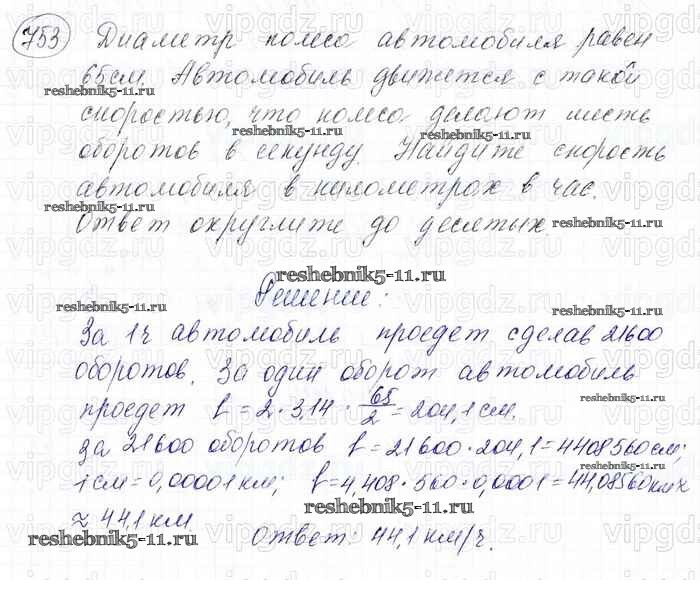 753 Диаметр колеса автомобиля равен
65 см. Автомобиль движется с такой
reshebnik5-11.ru reshebnik5-11.ru
скоростью, что колеса делают шесть
reshebnik5-11.ru reshebnik5-11.ru
оборотов в секунду. Найдите скорость
автомобиля в километрах в час.
reshebnik5-11.ru reshebnik5-11.ru
Ответ округлите до десятых.
reshebnik5-11.ru
reshebnik5-11.ru
Решение:
reshebnik5-11.ru reshebnik5-11.ru
За 1 ч автомобиль проедет сделав 21600
оборотов. За один оборот автомобиль
reshebnik5-11.ru reshebnik5-11.ru
проедет l = 2 · 3,14 · 65/2 = 204,1 см.
За 21600 оборотов l = 21600 · 204,1 = 4408560 см;
reshebnik5-11.ru reshebnik5-11.ru
1 см = 0,00001 км; l = 4,408 · 560 · 0,0001 = 44,08560 км ≈
≈ 44,1 км
Ответ: 44,1 км/ч.
reshebnik5-11.ru reshebnik5-11.ru